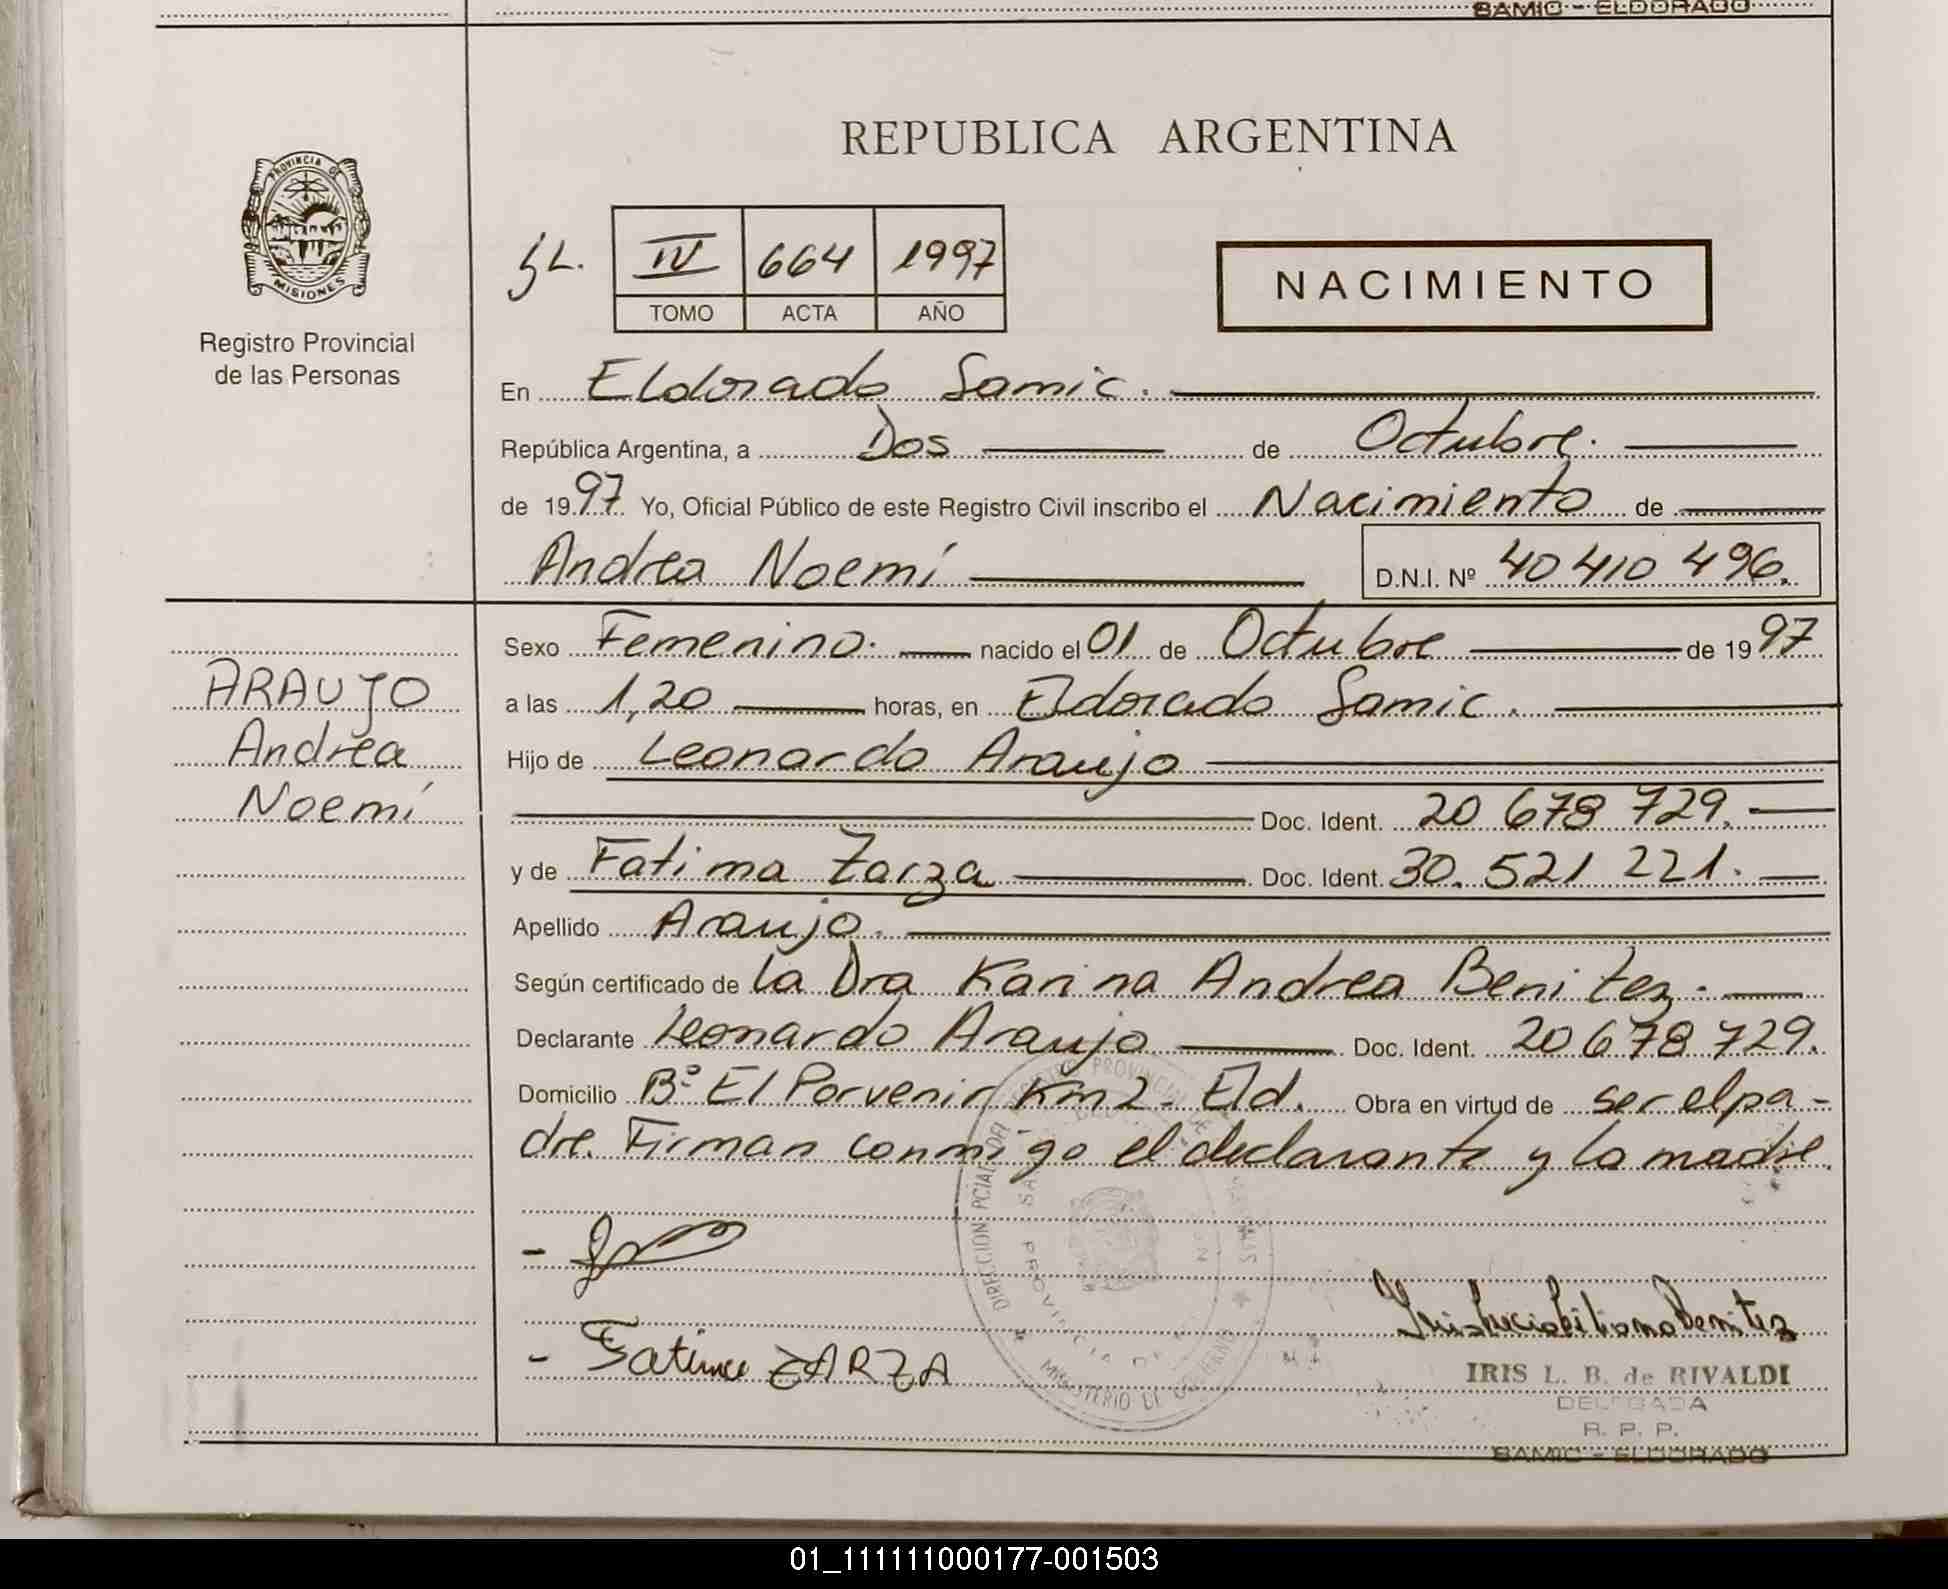 SAMIC - ELDORADO
REPUBLICA ARGENTINA
PROVINCIA DE
MISIONES
Registro Provincial
de las Personas
IV 664 1997
TOMO ACTA AÑO
NACIMIENTO
En Eldorado Samic.
República Argentina, a Dos de Octubre.
de 1997 Yo, Oficial Público de este Registro Civil inscribo el Nacimiento de
Andrea Noemí D.N.I. Nº 40 410 496.
Sexo Femenino. nacido el 01 de Octubre de 1997
a las 1,20 horas, en Eldorado Samic.
Hijo de Leonardo Araujo
Doc. Ident. 20 678 729.
y de Fatima Zarza Doc. Ident. 30. 521 221.
Apellido Araujo.
Según certificado de la Dra Karina Andrea Benitez.
Declarante Leonardo Araujo Doc. Ident. 20 678 729.
Domicilio Bº El Porvenir Km 2 - Eld. Obra en virtud de ser el pa-
dre. Firman conmigo el declarante y la madre.
ARAUJO
Andrea
Noemí
- Fatima ZARZA
IRIS L. B. de RIVALDI
DELEGADA
R. P. P.
SAMIC - ELDORADO
DIRECCION PCIAL DEL REGISTRO PROVINCIAL DE LAS PERSONAS
MINISTERIO DE GOBIERNO
PROVINCIA DE
01_111111000177-001503